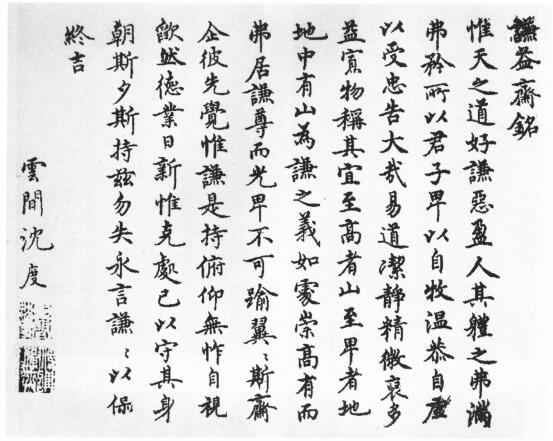 謙益齋銘
惟天之道好謙惡盈人其軆之弗滿
弗矜所以君子卑以自牧溫恭自虛
以受忠告大哉易道潔靜精微裒多
益寡物稱其宜至高者山至卑者地
地中有山為謙之義如處崇高有而
弗居謙尊而光卑不可踰翼〻斯齋
企彼先覺惟謙是持俯仰無怍自視
歛然德業日新惟克處已以守其身
朝斯夕斯持玆勿失永言謙〻以保
終吉
雲間沈度